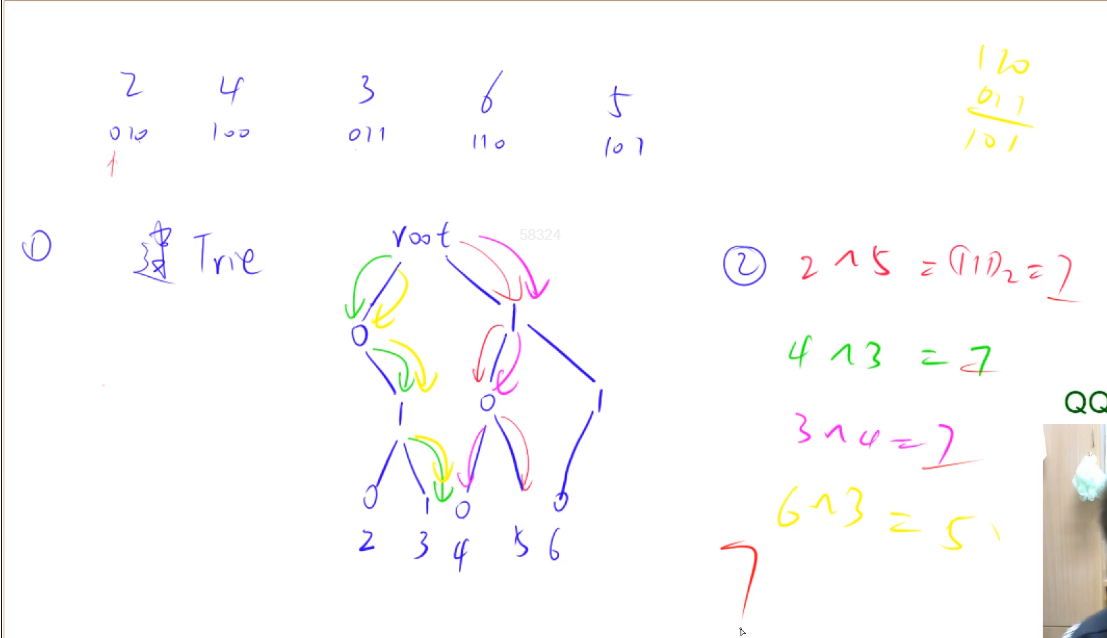 2 4 3 6 5
010 100 011 110 101
1
110
011
101
① 建 Trie
root
58324
0 1
1 0 1
0 1 0 1 0
2 3 4 5 6
② 2 ^ 5 = (111)₂ = 7
4 ^ 3 = 7
3 ^ 4 = 7
6 ^ 3 = 5
7
QQ